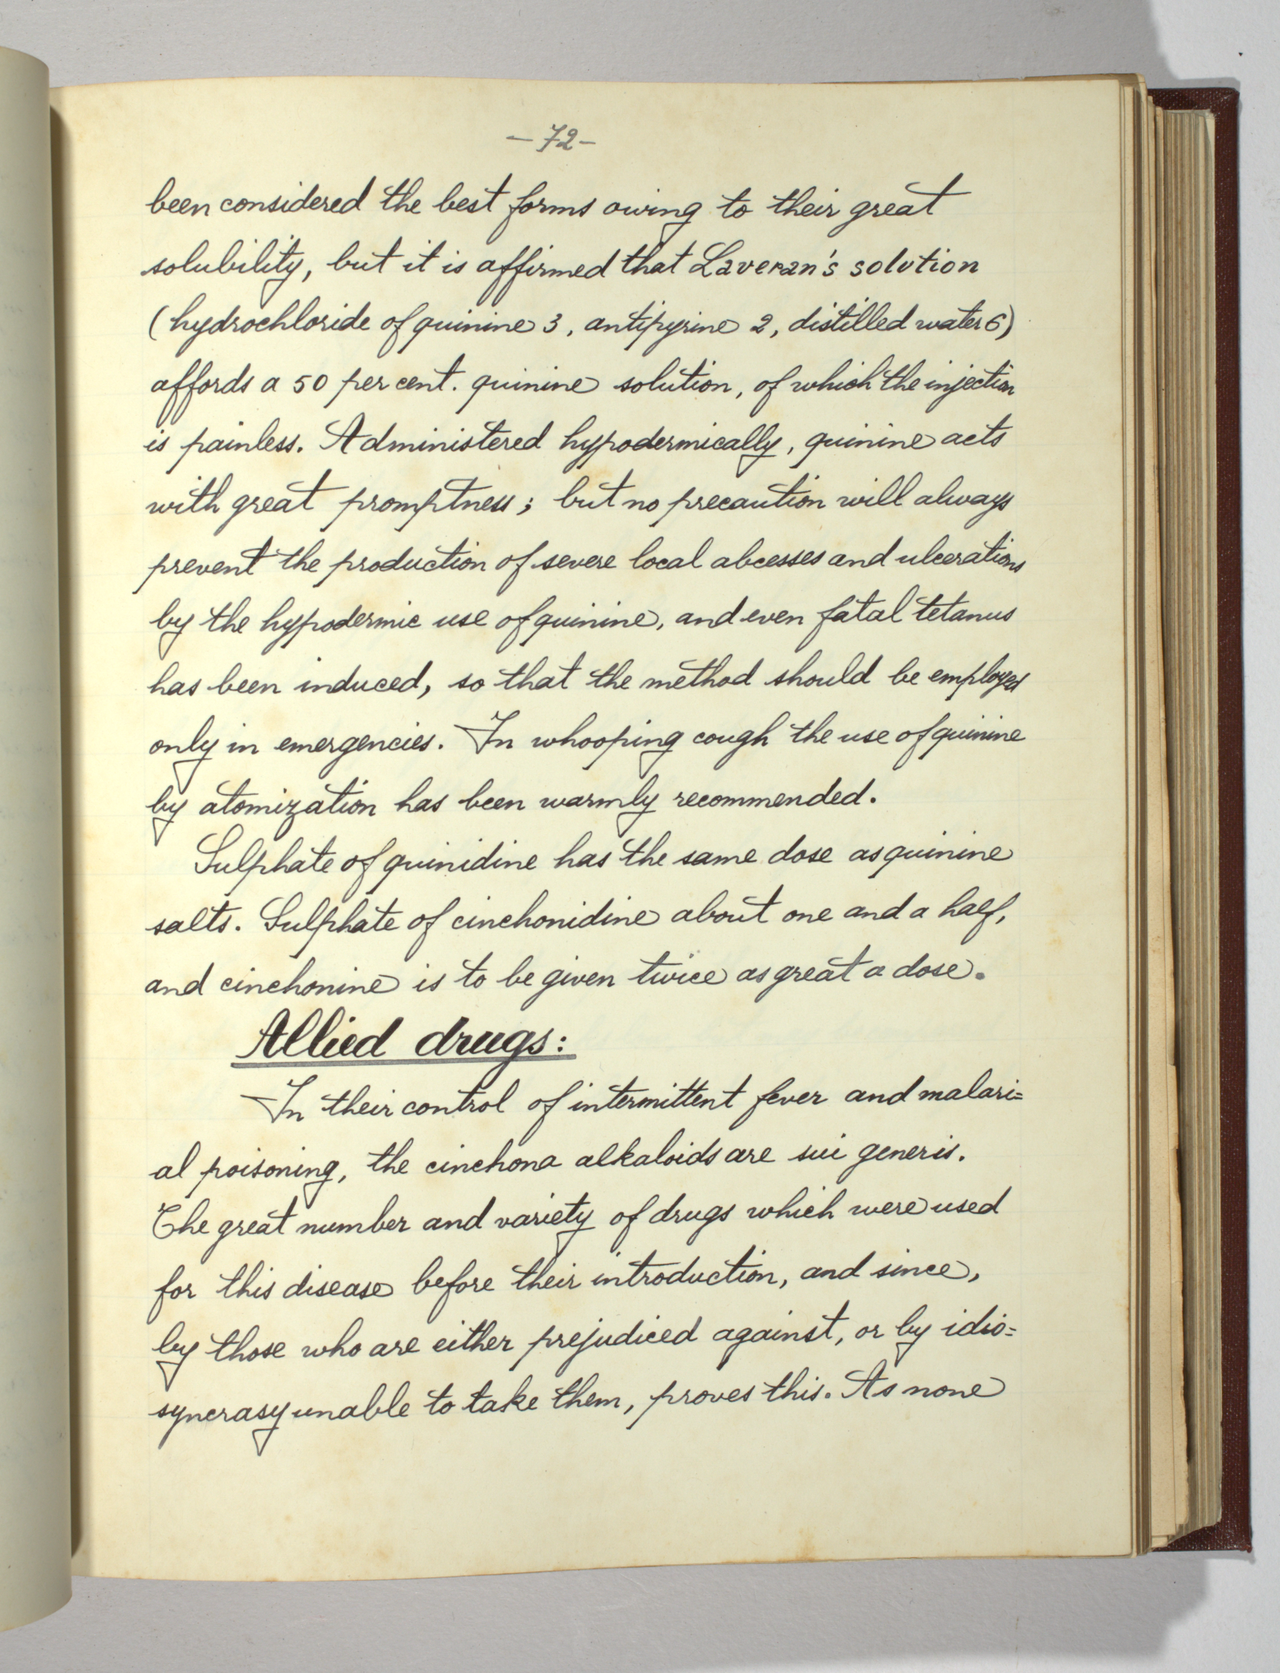 -72-
been considered the best forms owing to their great
solubility, but it is affirmed that Laveran's solution
(hydrochloride of quinine 3, antipyrine 2, distilled water 6)
affords a 50 per cent. quinine solution, of which the injection
is painless. Administered hypodermically, quinine acts
with great promptness; but no precaution will always
prevent the production of severe local abcesses and ulcerations
by the hypodermic use of quinine, and even fatal tetanus
has been induced, so that the method should be employed
only in emergencies. In whooping cough the use of quinine
by atomization has been warmly recommended.
Sulphate of quinidine has the same dose as quinine
salts. Sulphate of cinchonidine about one and a half,
and cinchonine is to be given twice as great a dose.
Allied drugs:
In their control of intermittent fever and malari=
al poisoning, the cinchona alkaloids are sui generis.
The great number and variety of drugs which were used
for this disease before their introduction, and since,
by those who are either prejudiced against, or by idio=
syncrasy unable to take them, proves this. As none